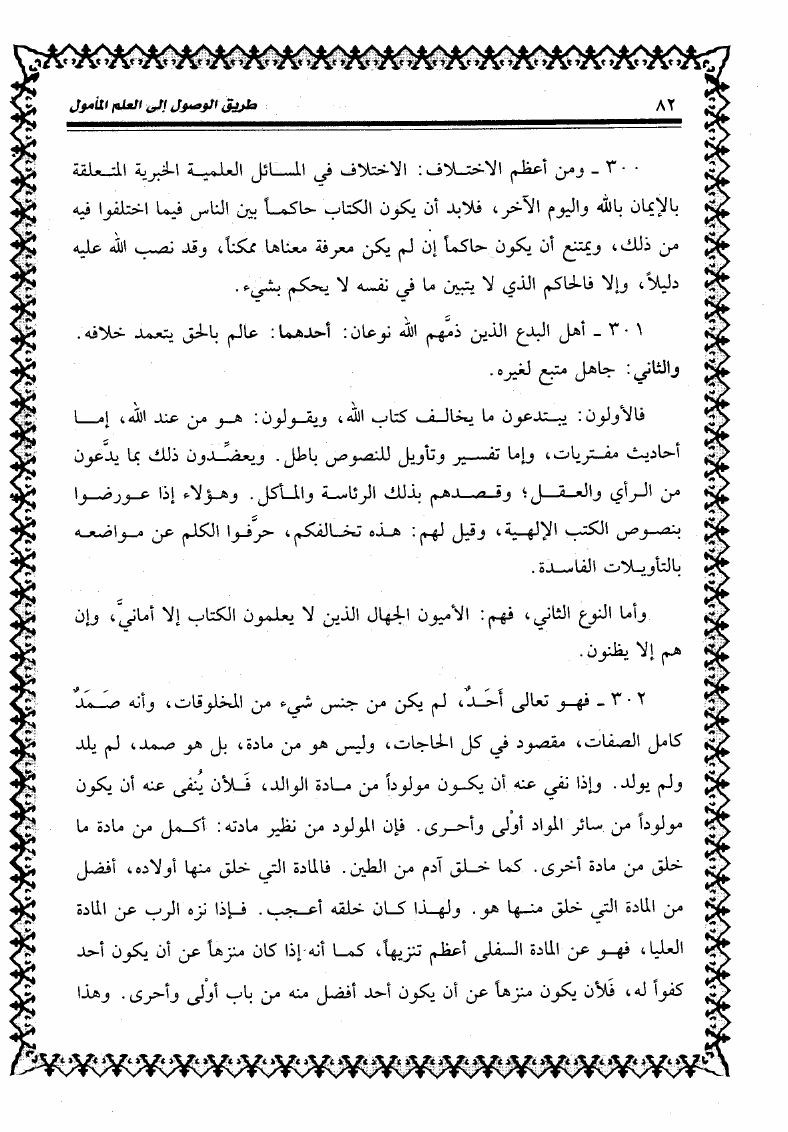 ٨٢ طريق الوصول إلى العلم المأمول
٣٠٠ ـ ومن أعظم الاختلاف: الاختلاف في المسائل العلمية الخبرية المتعلقة
بالإيمان بالله واليوم الآخر، فلابد أن يكون الكتاب حاكماً بين الناس فيما اختلفوا فيه
من ذلك، ويمتنع أن يكون حاكماً إن لم يكن معرفة معناها ممكناً، وقد نصب الله عليه
دليلاً، وإلا فالحاكم الذي لا يتبين ما في نفسه لا يحكم بشيء.
٣٠١ ـ أهل البدع الذين ذمَّهم الله نوعان: أحدهما: عالم بالحق يتعمد خلافه.
والثاني: جاهل متبع لغيره.
فالأولون: يبتدعون ما يخالف كتاب الله، ويقولون: هو من عند الله، إما
أحاديث مفتريات، وإما تفسير وتأويل للنصوص باطل. ويعضِّدون ذلك بما يدَّعون
من الرأي والعقل؛ وقصدهم بذلك الرئاسة والمأكل. وهؤلاء إذا عورضوا
بنصوص الكتب الإلهية، وقيل لهم: هذه تخالفكم، حرَّفوا الكلم عن مواضعه
بالتأويلات الفاسدة.
وأما النوع الثاني، فهم: الأميون الجهال الذين لا يعلمون الكتاب إلا أمانيَّ، وإن
هم إلا يظنون.
٣٠٢ ـ فهو تعالى أَحَدٌ، لم يكن من جنس شيء من المخلوقات، وأنه صَمَدٌ
كامل الصفات، مقصود في كل الحاجات، وليس هو من مادة، بل هو صمد، لم يلد
ولم يولد. وإذا نفي عنه أن يكون مولوداً من مادة الوالد، فَلأن يُنفى عنه أن يكون
مولوداً من سائر المواد أوْلى وأحرى. فإن المولود من نظير مادته: أكمل من مادة ما
خلق من مادة أخرى. كما خلق آدم من الطين. فالمادة التي خلق منها أولاده، أفضل
من المادة التي خلق منها هو. ولهذا كان خلقه أعجب. فإذا نزه الرب عن المادة
العليا، فهو عن المادة السفلى أعظم تنزيهاً، كما أنه إذا كان منزهاً عن أن يكون أحد
كفواً له، فَلأن يكون منزهاً عن أن يكون أحد أفضل منه من باب أوْلى وأحرى. وهذا